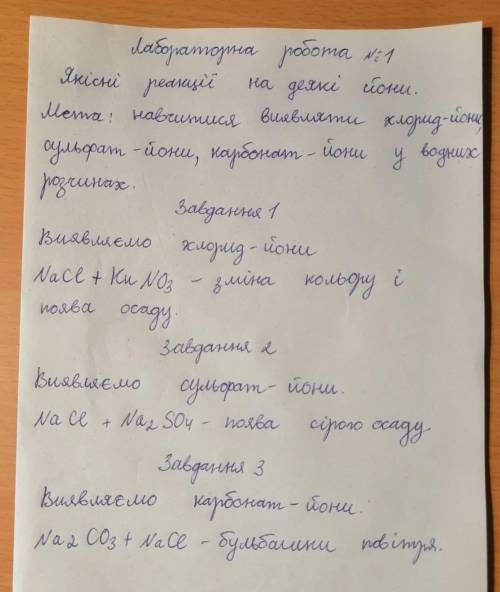 Лабораторна робота №1
Якісні реакції на деякі йони.
Мета: навчитися виявляти хлорид-йони,
сульфат-йони, карбонат-йони у водних
розчинах.
Завдання 1
Виявляємо хлорид-йони
NaCl + Ku NO3 - зміна кольору і
поява осаду.
Завдання 2
Виявляємо сульфат-йони.
NaCl + Na2SO4 - поява сірого осаду
Завдання 3
Виявляємо карбонат-йони.
Na2CO3 + NaCl - бульбашки повітря.